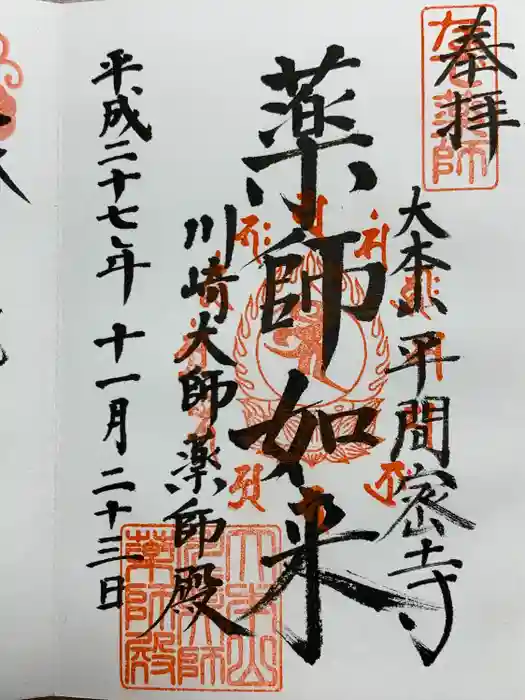 奉拝
大本山平間密寺
薬師如来
川崎大師薬師殿
平成二十七年十一月二十三日
大本山
川崎大師
薬師殿